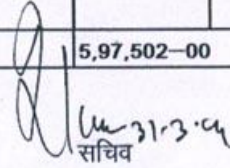 5,97,502—00
31-3-04
सचिव